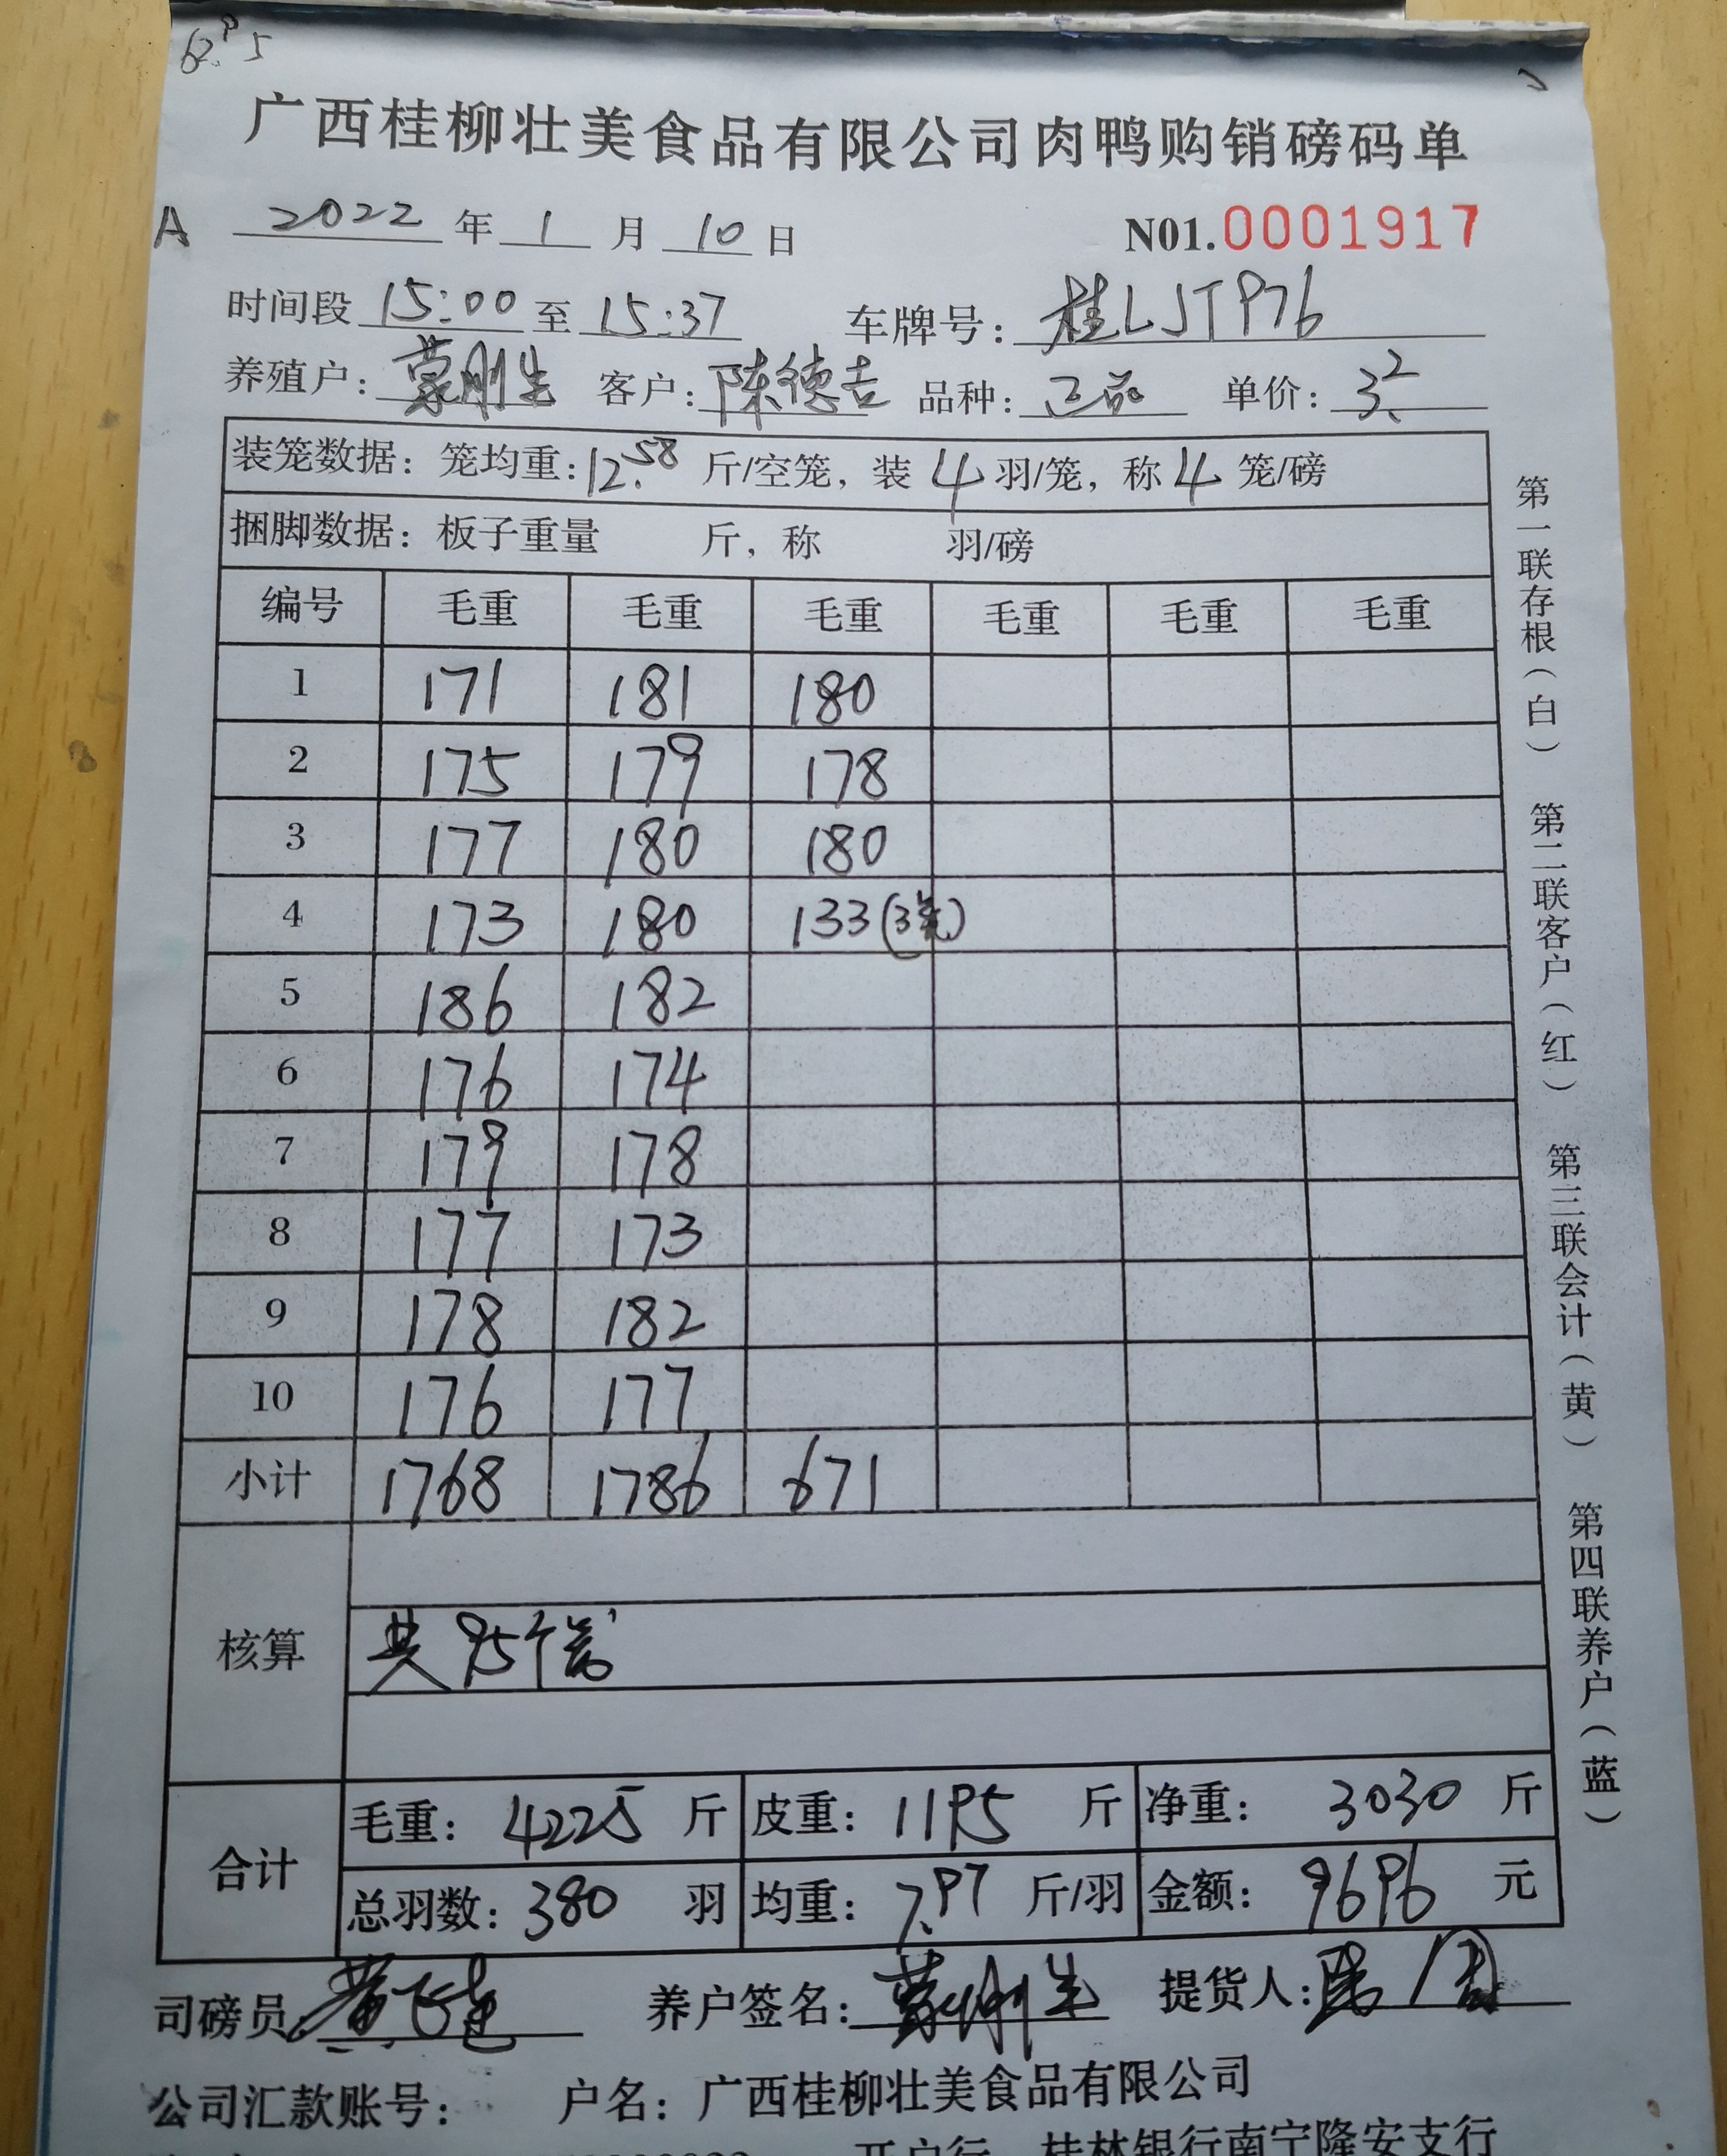 广西桂柳壮美食品有限公司肉鸭购销磅码单
A 2022 年 1 月 10 日 N01.0001917
时间段 15:00 至 15:37 车牌号: 桂LJT976
养殖户: 蒙刚生 客户: 陈德吉 品种: 正品 单价: 3.2
装笼数据: 笼均重: 12.58 斤/空笼, 装 4 羽/笼, 称 4 笼/磅
捆脚数据: 板子重量 斤, 称 羽/磅
编号 毛重 毛重 毛重 毛重 毛重 毛重
1 171 181 180
2 175 179 178
3 177 180 180
4 173 180 133(3笼)
5 186 182
6 176 174
7 179 178
8 177 173
9 178 182
10 176 177
小计 1768 1786 671
核算
共95个笼
合计
毛重: 4225 斤 皮重: 1195 斤 净重: 3030 斤
总羽数: 380 羽 均重: 7.97 斤/羽 金额: 9696 元
司磅员: 养户签名: 蒙刚生 提货人:
公司汇款账号: 户名: 广西桂柳壮美食品有限公司
开户行 桂林银行南宁隆安支行
第一联存根(白) 第二联客户(红) 第三联会计(黄) 第四联养户(蓝)